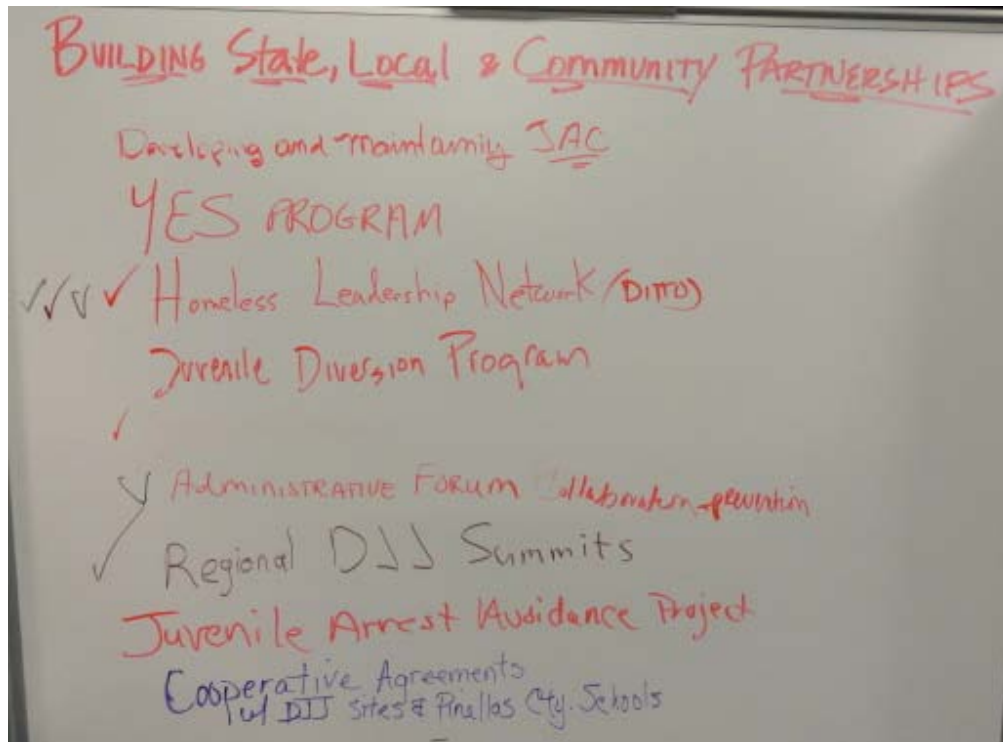 BUILDING State, Local & Community PARTNERSHIPS
Developing and maintaining JAC
YES PROGRAM
Homeless Leadership Network (DITTO)
Juvenile Diversion Program
Administrative Forum Collaboration-prevention
Regional DJJ Summits
Juvenile Arrest Avoidance Project
Cooperative Agreements
w/ DJJ Sites & Pinellas Cty. Schools